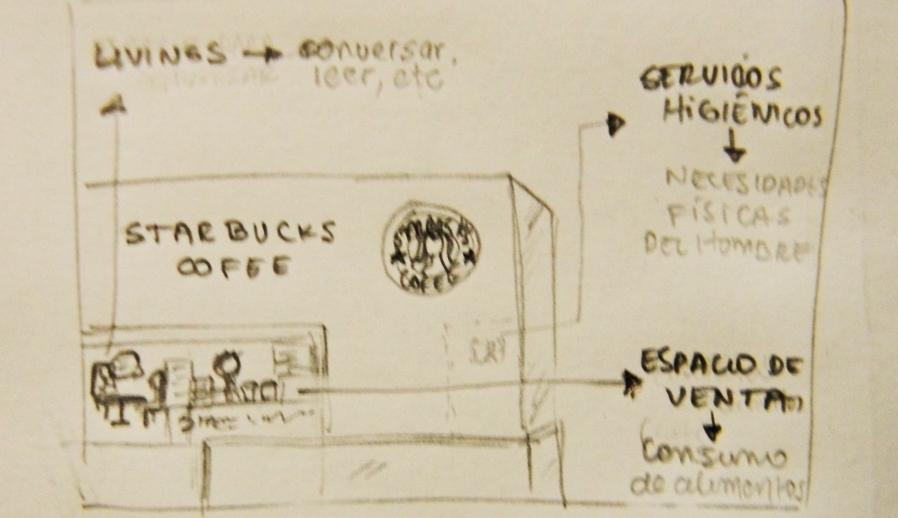 LIVINGS → conversar,
leer, etc
SERVICIOS
HIGIÉNICOS
NECESIDADES
FÍSICAS
DEL HOMBRE
STARBUCKS
COFFEE
COFFEE
ESPACIO DE
VENTA
Consumo
de alimentos